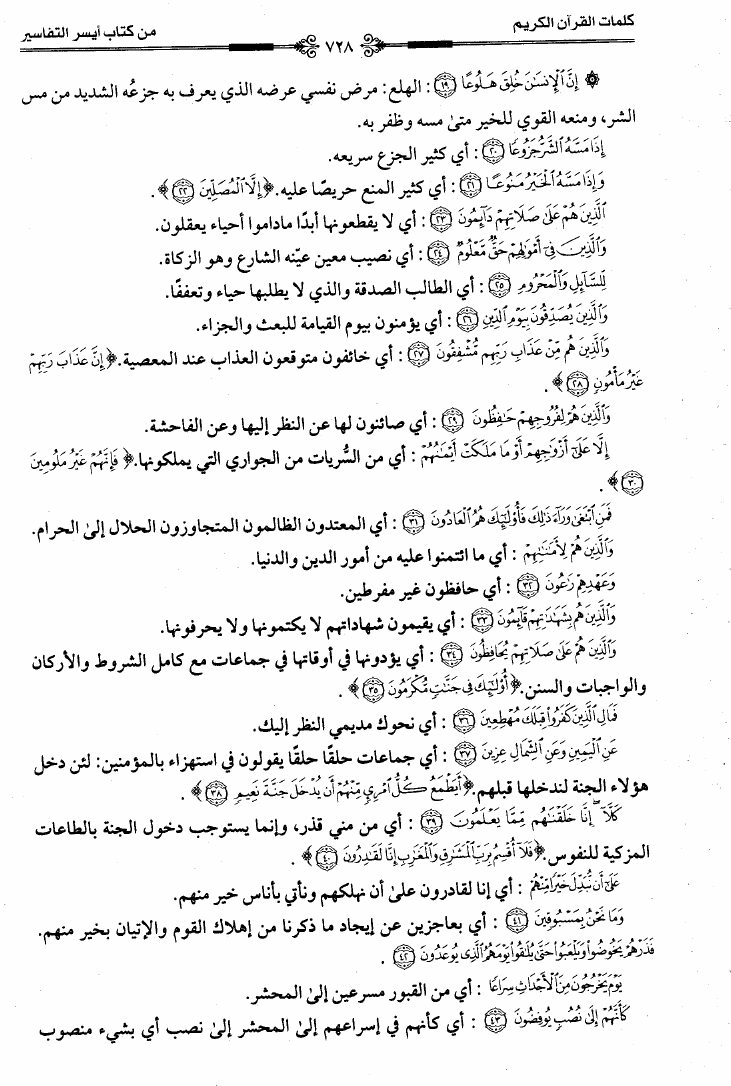 كلمات القرآن الكريم
٧٢٨
من كتاب أيسر التفاسير
۞ إِنَّ ٱلْإِنسَٰنَ خُلِقَ هَلُوعًا ۝١٩ : الهلع: مرض نفسي عرضه الذي يعرف به جزعُه الشديد من مس
الشر، ومنعه القوي للخير متىٰ مسه وظفر به.
إِذَا مَسَّهُ ٱلشَّرُّ جَزُوعًا ۝٢٠ : أي كثير الجزع سريعه.
وَإِذَا مَسَّهُ ٱلْخَيْرُ مَنُوعًا ۝٢١ : أي كثير المنع حريصًا عليه.﴿إِلَّا ٱلْمُصَلِّينَ ۝٢٢﴾.
ٱلَّذِينَ هُمْ عَلَىٰ صَلَاتِهِمْ دَآئِمُونَ ۝٢٣ : أي لا يقطعونها أبدًا ماداموا أحياء يعقلون.
وَٱلَّذِينَ فِىٓ أَمْوَٰلِهِمْ حَقٌّ مَّعْلُومٌ ۝٢٤ : أي نصيب معين عيّنه الشارع وهو الزكاة.
لِّلسَّآئِلِ وَٱلْمَحْرُومِ ۝٢٥ : أي الطالب الصدقة والذي لا يطلبها حياء وتعففًا.
وَٱلَّذِينَ يُصَدِّقُونَ بِيَوْمِ ٱلدِّينِ ۝٢٦ : أي يؤمنون بيوم القيامة للبعث والجزاء.
وَٱلَّذِينَ هُم مِّنْ عَذَابِ رَبِّهِم مُّشْفِقُونَ ۝٢٧ : أي خائفون متوقعون العذاب عند المعصية.﴿إِنَّ عَذَابَ رَبِّهِمْ
غَيْرُ مَأْمُونٍ ۝٢٨﴾.
وَٱلَّذِينَ هُمْ لِفُرُوجِهِمْ حَٰفِظُونَ ۝٢٩ : أي صائنون لها عن النظر إليها وعن الفاحشة.
إِلَّا عَلَىٰٓ أَزْوَٰجِهِمْ أَوْ مَا مَلَكَتْ أَيْمَٰنُهُمْ : أي من السُّريات من الجواري التي يملكونها.﴿فَإِنَّهُمْ غَيْرُ مَلُومِينَ
۝٣٠﴾.
فَمَنِ ٱبْتَغَىٰ وَرَآءَ ذَٰلِكَ فَأُو۟لَٰٓئِكَ هُمُ ٱلْعَادُونَ ۝٣١ : أي المعتدون الظالمون المتجاوزون الحلال إلىٰ الحرام.
وَٱلَّذِينَ هُمْ لِأَمَٰنَٰتِهِمْ : أي ما ائتمنوا عليه من أمور الدين والدنيا.
وَعَهْدِهِمْ رَٰعُونَ ۝٣٢ : أي حافظون غير مفرطين.
وَٱلَّذِينَ هُم بِشَهَٰدَٰتِهِمْ قَآئِمُونَ ۝٣٣ : أي يقيمون شهاداتهم لا يكتمونها ولا يحرفونها.
وَٱلَّذِينَ هُمْ عَلَىٰ صَلَاتِهِمْ يُحَافِظُونَ ۝٣٤ : أي يؤدونها في أوقاتها في جماعات مع كامل الشروط والأركان
والواجبات والسنن.﴿أُو۟لَٰٓئِكَ فِى جَنَّٰتٍ مُّكْرَمُونَ ۝٣٥﴾.
فَمَالِ ٱلَّذِينَ كَفَرُوا۟ قِبَلَكَ مُهْطِعِينَ ۝٣٦ : أي نحوك مديمي النظر إليك.
عَنِ ٱلْيَمِينِ وَعَنِ ٱلشِّمَالِ عِزِينَ ۝٣٧ : أي جماعات حلقًا حلقًا يقولون في استهزاء بالمؤمنين: لئن دخل
هؤلاء الجنة لندخلها قبلهم.﴿أَيَطْمَعُ كُلُّ ٱمْرِئٍ مِّنْهُمْ أَن يُدْخَلَ جَنَّةَ نَعِيمٍ ۝٣٨﴾.
كَلَّآ ۖ إِنَّا خَلَقْنَٰهُم مِّمَّا يَعْلَمُونَ ۝٣٩ : أي من مني قذر، وإنما يستوجب دخول الجنة بالطاعات
المزكية للنفوس.﴿فَلَآ أُقْسِمُ بِرَبِّ ٱلْمَشَٰرِقِ وَٱلْمَغَٰرِبِ إِنَّا لَقَٰدِرُونَ ۝٤٠﴾.
عَلَىٰٓ أَن نُّبَدِّلَ خَيْرًا مِّنْهُمْ : أي إنا لقادرون علىٰ أن نهلكهم ونأتي بأناس خير منهم.
وَمَا نَحْنُ بِمَسْبُوقِينَ ۝٤١ : أي بعاجزين عن إيجاد ما ذكرنا من إهلاك القوم والإتيان بخير منهم.
فَذَرْهُمْ يَخُوضُوا۟ وَيَلْعَبُوا۟ حَتَّىٰ يُلَٰقُوا۟ يَوْمَهُمُ ٱلَّذِى يُوعَدُونَ ۝٤٢ .
يَوْمَ يَخْرُجُونَ مِنَ ٱلْأَجْدَاثِ سِرَاعًا : أي من القبور مسرعين إلىٰ المحشر.
كَأَنَّهُمْ إِلَىٰ نُصُبٍ يُوفِضُونَ ۝٤٣ : أي كأنهم في إسراعهم إلىٰ المحشر إلىٰ نصب أي بشيء منصوب